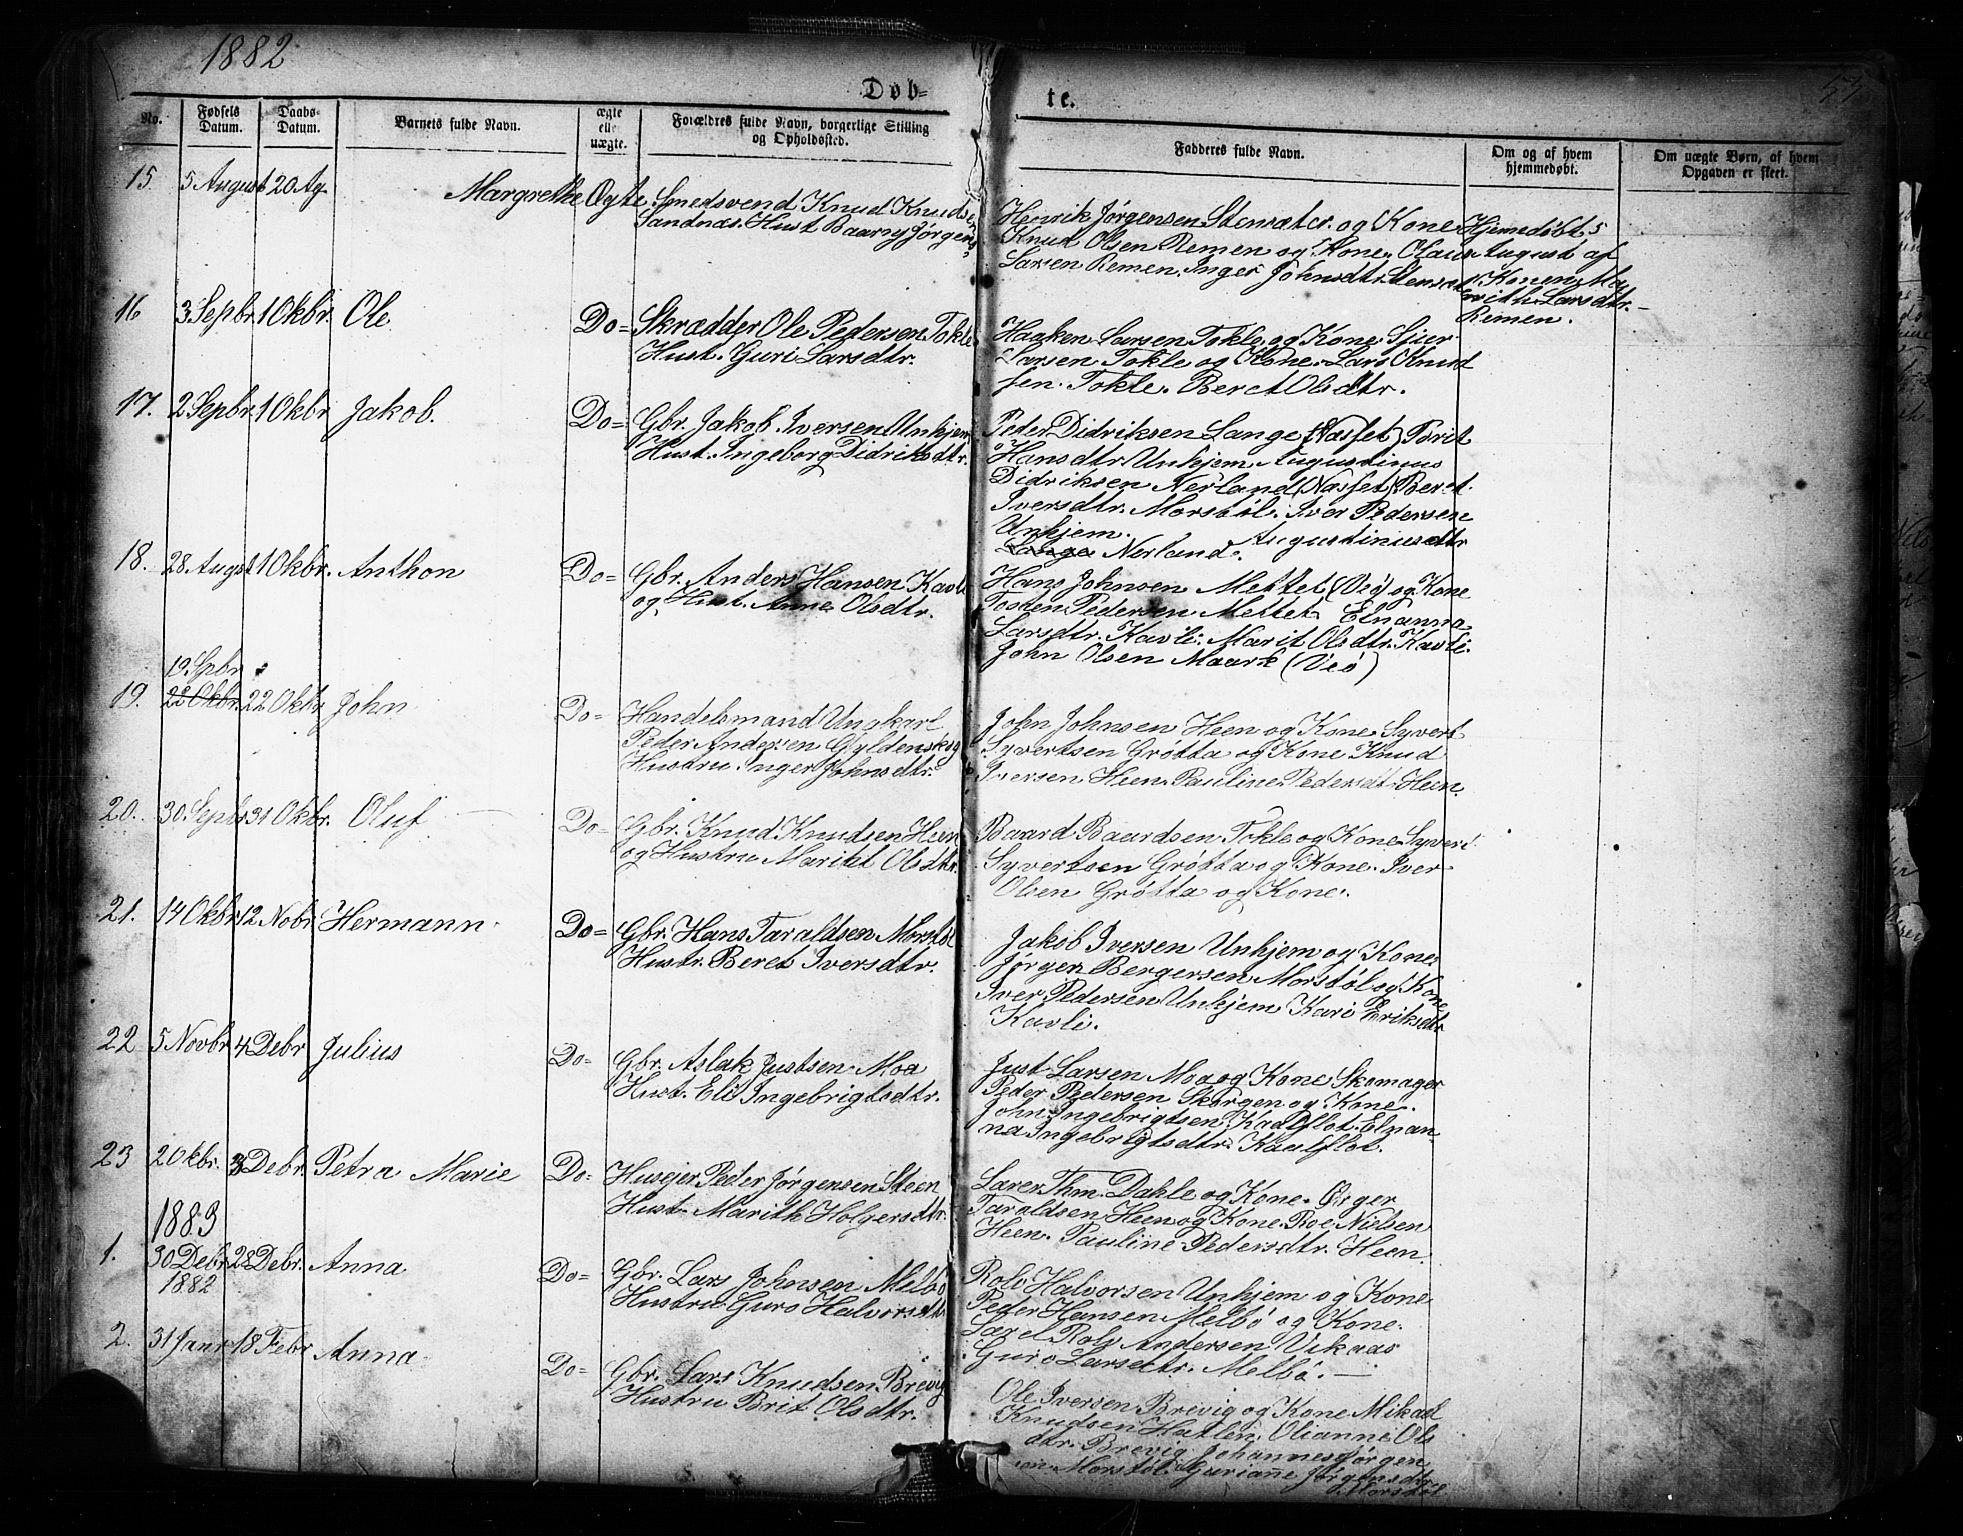 1882
57
Døb=
te.
No.
Fødsels Datum.
Daabs-Datum.
Barnets fulde Navn.
ægte elle uægte.
Forældres fulde Navn, borgerlige Stilling og Opholdssted.
Fadderes fulde Navn.
Om og af hvem hjemmedøbt.
Om uægte Børn, af hvem Opgaven er skeet.
15. 5 August 20 Ag. Margrethe Ægte Smedsvend Knud Knudsen
Sandnæs. Hust Baarny Jørgens
Henrik Jørgensen Stensæter og Kone
Knud Olsen Remen og Kone. Olaus
Larsen Remen. Inger Johnsdtr. Stensæt
Hjemedøbt 5
August af
Konen Ma
rith Larsdtr.
Remen.
16 3 Sepbr. 1 Okbr. Ole Do= Skrædder Ole Pedersen Tokle
Hust. Guri Larsdtr.
Haaken Larsen Tokle og Kone. Sjur
Larsen Tokle og Kone. Lars Knud
sen. Tokle. Beret Olsdtr.
17. 2 Sepbr. 1 Okbr Jakob. Do= Gbr. Jakob Iversen Unhjem
Hust. Ingeborg Didriksdtr.
Peder Didriksen Lange (Næsset) Brit
Hansdtr Unhjem Augustinus
Didriksen Nerland (Næsset) Beret
Iversdtr. Morstøl. Iver Pedersen
Unhjem. Augustinusdtr
Lange Nerland.
18. 28 Augst 1 Okbr. Anthon Do= Gbr. Anders Hansen Kavli
og Hust. Anne Olsdtr.
Hans Johnsen Mettet (Veø) og Kone
Pedersen Mettet Elnanna
Larsdtr. Kavli. Marit Olsdtr. Kavli.
John Olsen Maark (Veø)
19 Spbr
19. 22 Okbr. 22 Oktbr John Do= Handelsmand Ungkarl
Peder Andersen Gyldenskog
Hustru Inger Johnsdtr.
John Johnsen Heen og Kone. Syvert
Syvertsen Grøtta og Kone Knud
Iversen Heen. Pauline Pedersdt. Heen.
20. 30 Sepbr 31 Okbr. Oluf Do= Gbr. Knud Knudsen Heen
og Hustru Marit Olsdtr.
Baard Baardsen Tokle og Kone Syvert
Syvertsen Grøtta og Kone. Iver
Olsen Grøtta og Kone.
21. 14 Okbr. 12 Nobr. Hermann Do= Gbr. Hans Taraldsen Morstøl
Hustr. Beret Iversdtr.
Jakob Iversen Unhjem og Kone
Jørgen Bergersen Morstøl og Kone
Iver Pedersen Unhjem Kari Eriksdtr
Kavli.
22 5 Novbr 4 Debr Julius Do= Gbr. Aslak Justsen Moa
Hust. Eli Ingebrigtsdtr.
Just Larsen Moa og Kone Skomager
Peder Pedersen Skorgen og Kone.
John Ingebrigtsen Kavflot. Elnan
na Ingebrigtsdtr. Kaulflot.
23 2 Okbr. 3 Debr. Petra Marie Do= Husejer Peder Jørgensen Steen
Hust. Marith Holgersdtr.
Larer Thm. Dahle og Kone.
Taraldsen Heen og Kone. Roe Nielsen
Heen. Pauline Pedersdtr. Heen.
1883
1. 30 Debr 28 Debr. Anna Do= Gbr. Lars Johnsen Melbø
1882
Hustru Guro Halvorsdtr
Rolv Halvorsen Unhjem og Kone
Peder Hansen Melbø og Kone.
Rolv Andersen Vikaas
Guro Larsdtr. Melbø.
2. 31 Janr 18 Febr Anna Do= Gbr. Lars Knudsen Brevig
Hustru Brit Olsdtr.
Ole Iversen Brevig og Kone Mikael
Knudsen Hatlen. Olianne Ols
dtr. Brevig Johannes Jørgen
sen Morstøl. Guriane Jørgensdtr
Morstøl